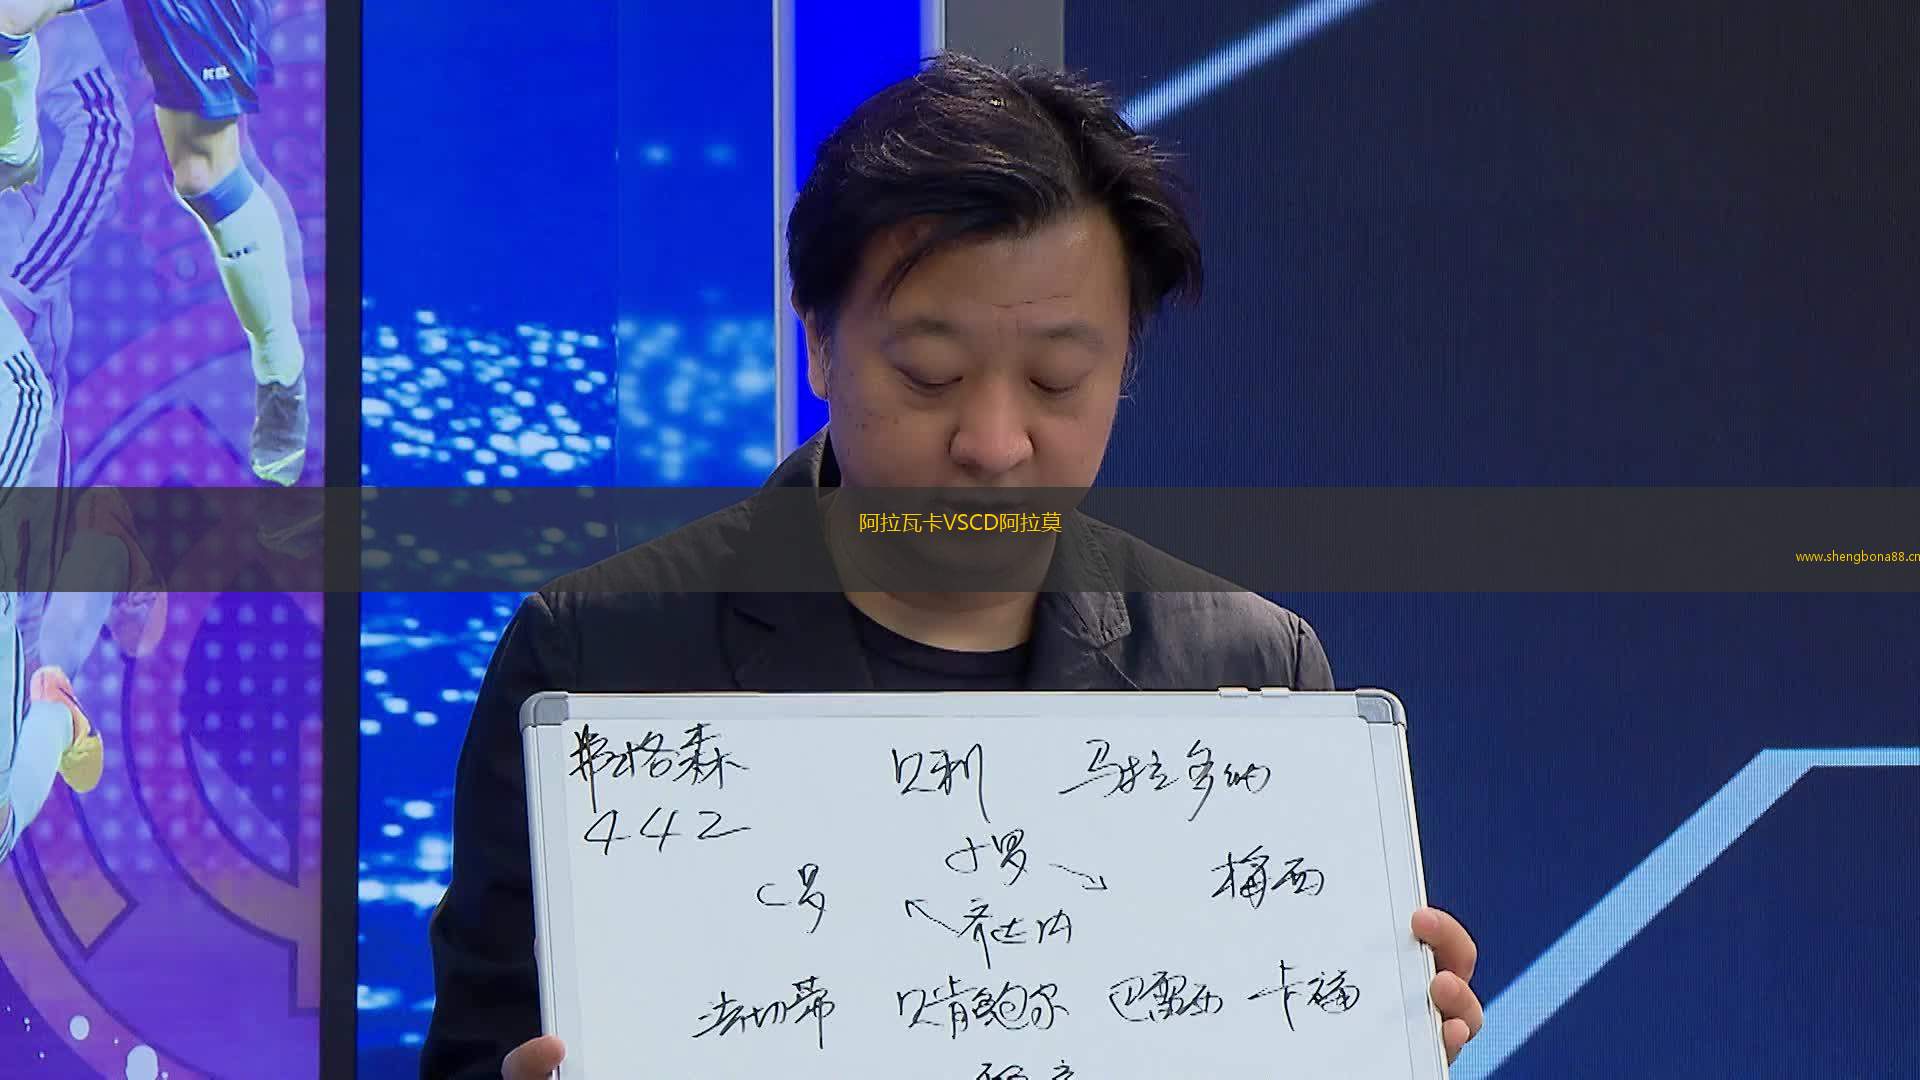 KEL
阿拉瓦卡VSCD阿拉莫
www.shengbona88.cn
弗格森 贝利 马拉多纳
442
小罗
C罗 梅西
齐达内
法切蒂 贝肯鲍尔 巴雷西 卡福